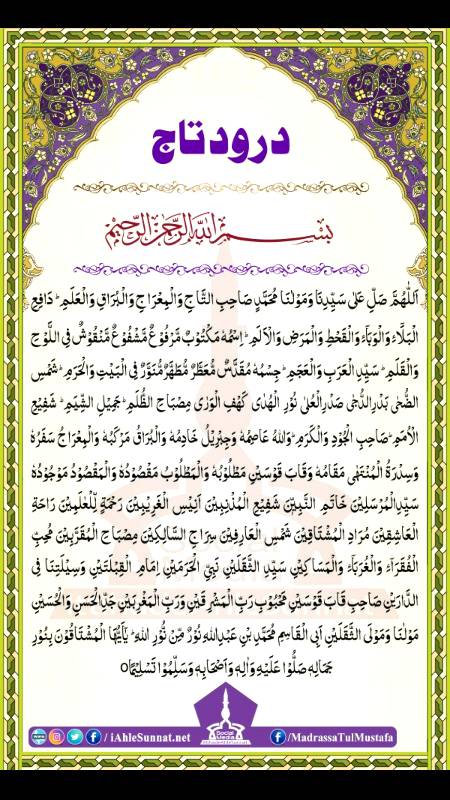 درود تاج
بسم الله الرحمن الرحيم
اَللّٰهُمَّ صَلِّ عَلٰى سَيِّدِنَا وَمَوْلٰنَا مُحَمَّدٍ صَاحِبِ التَّاجِ وَالْمِعْرَاجِ وَالْبُرَاقِ وَالْعَلَمِ ؕ دَافِعِ
الْبَلَآءِ وَالْوَبَآءِ وَالْقَحْطِ وَالْمَرَضِ وَالْاَلَمِ ؕ اِسْمُهٗ مَكْتُوْبٌ مَّرْفُوْعٌ مَّشْفُوْعٌ مَّنْقُوْشٌ فِى اللَّوْحِ
وَالْقَلَمِ ؕ سَيِّدِ الْعَرَبِ وَالْعَجَمِ ؕ جِسْمُهٗ مُقَدَّسٌ مُّعَطَّرٌ مُّطَهَّرٌ مُّنَوَّرٌ فِى الْبَيْتِ وَالْحَرَمِ ؕ شَمْسِ
الضُّحٰى بَدْرِ الدُّجٰى صَدْرِ الْعُلٰى نُوْرِ الْهُدٰى كَهْفِ الْوَرٰى مِصْبَاحِ الظُّلَمِ ؕ جَمِيْلِ الشِّيَمِ ؕ شَفِيْعِ
الْاُمَمِ ؕ صَاحِبِ الْجُوْدِ وَالْكَرَمِ ؕ وَاللهُ عَاصِمُهٗ وَجِبْرِيْلُ خَادِمُهٗ وَالْبُرَاقُ مَرْكَبُهٗ وَالْمِعْرَاجُ سَفَرُهٗ
وَسِدْرَةُ الْمُنْتَهٰى مَقَامُهٗ وَقَابَ قَوْسَيْنِ مَطْلُوْبُهٗ وَالْمَطْلُوْبُ مَقْصُوْدُهٗ وَالْمَقْصُوْدُ مَوْجُوْدُهٗ
سَيِّدِ الْمُرْسَلِيْنَ خَاتَمِ النَّبِيّٖنَ شَفِيْعِ الْمُذْنِبِيْنَ اَنِيْسِ الْغَرِيْبِيْنَ رَحْمَةٍ لِّلْعٰلَمِيْنَ رَاحَةِ
الْعَاشِقِيْنَ مُرَادِ الْمُشْتَاقِيْنَ شَمْسِ الْعَارِفِيْنَ سِرَاجِ السَّالِكِيْنَ مِصْبَاحِ الْمُقَرَّبِيْنَ مُحِبِّ
الْفُقَرَآءِ وَالْغُرَبَآءِ وَالْمَسَاكِيْنِ سَيِّدِ الثَّقَلَيْنِ نَبِىِّ الْحَرَمَيْنِ اِمَامِ الْقِبْلَتَيْنِ وَسِيْلَتِنَا فِى
الدَّارَيْنِ صَاحِبِ قَابَ قَوْسَيْنِ مَحْبُوْبِ رَبِّ الْمَشْرِقَيْنِ وَرَبِّ الْمَغْرِبَيْنِ جَدِّ الْحَسَنِ وَالْحُسَيْنِ
مَوْلٰنَا وَمَوْلَى الثَّقَلَيْنِ اَبِى الْقَاسِمِ مُحَمَّدِ بْنِ عَبْدِ اللهِ نُوْرٍ مِّنْ نُّوْرِ اللهِ ؕ يٰاَيُّهَا الْمُشْتَاقُوْنَ بِنُوْرِ
جَمَالِهٖ صَلُّوْا عَلَيْهِ وَاٰلِهٖ وَاَصْحَابِهٖ وَسَلِّمُوْا تَسْلِيْمًا ۝
/iAhleSunnat.net
Social
Media
/MadrassaTulMustafa